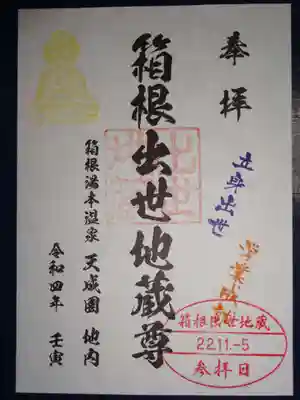 奉拝
立身出世
学業成就
箱根出世地蔵尊
箱根湯本温泉 天成園 地内
令和四年 壬寅
箱根出世地蔵
22.11.-5
参拝日